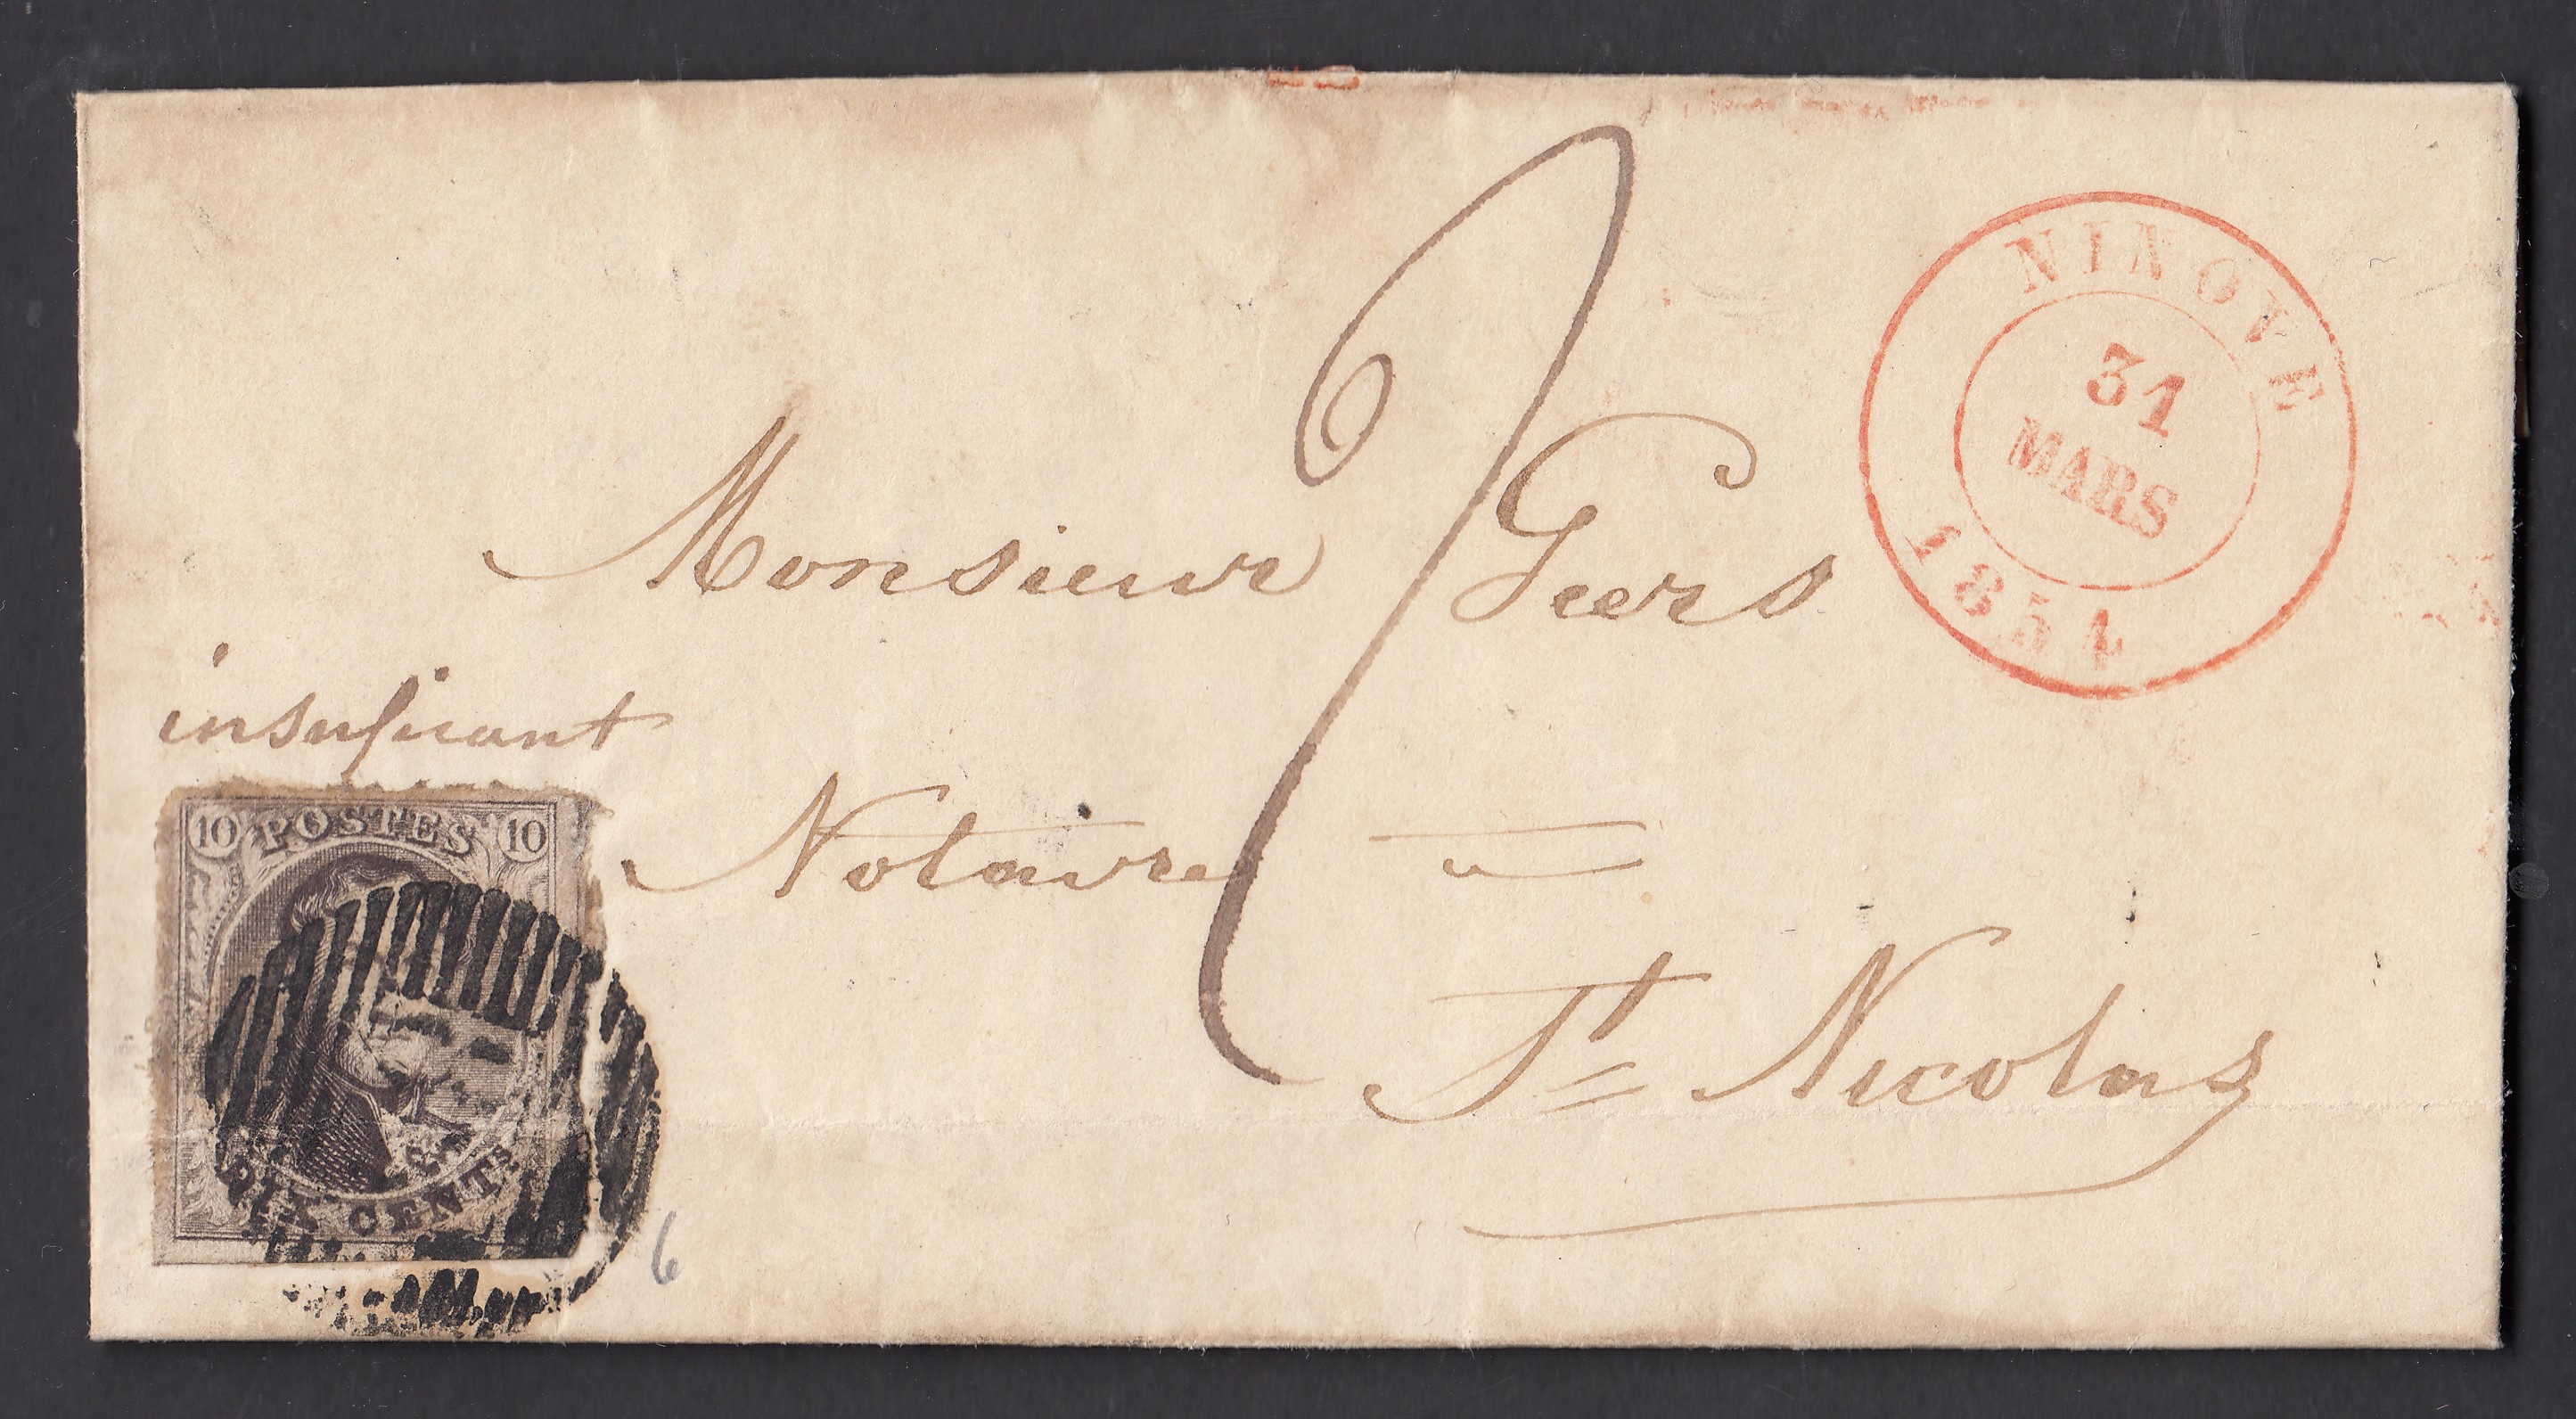 NINOVE
31
MARS
1854
Monsieur Geers
insufisant
Notaire
St Nicolas
10 POSTES 10
DIX CENTS.
6